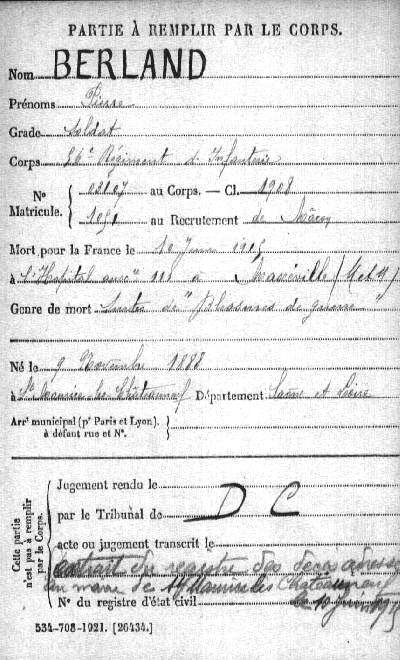 PARTIE À REMPLIR PAR LE CORPS.
Nom BERLAND
Prénoms Pierre
Grade Soldat
Corps 26e Régiment d'Infanterie
No Matricule. 03107 au Corps. — Cl. 1908
1091 au Recrutement de Mâcon
Mort pour la France le 10 1915
à l'Hôpital à
Genre de mort Suites de "blessures de guerre"
Né le 9 Novembre 1888
à St Maurice les Châteauneuf Département Saône et Loire
Arrt municipal (pr Paris et Lyon).
à défaut rue et No.
Cette partie n'est pas à remplir par le Corps.
Jugement rendu le
par le Tribunal de D C
acte ou jugement transcrit le
extrait du registre des décès adressé
au maire de St Maurice les Châteauneuf
No du registre d'état civil
534-708-1921. [26434.]